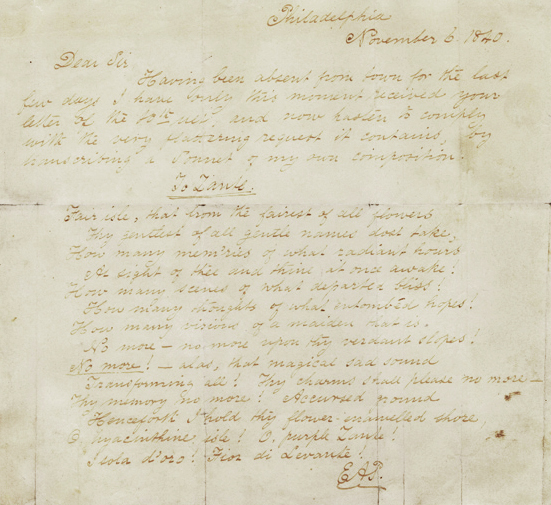 Philadelphia
November 6. 1840.
Dear Sir,
Having been absent from town for the last
few days I have only this moment received your
letter of the and now hasten to comply
with the very flattering request it contains, by
transcribing a Sonnet of my own composition.
To Zante.
Fair isle, that from the fairest of all flowers
Thy gentlest of all gentle names dost take,
How many mem'ries of what radiant hours
At sight of thee and thine at once awake!
How many scenes of what departed bliss!
How many thoughts of what entombéd hopes!
How many visions of a maiden that is
No more — no more upon thy verdant slopes!
No more! — alas, that magical sad sound
Transforming all! Thy charms shall please no more —
Thy memory no more! Accurséd ground
Henceforth I hold thy flower-enamelled shore,
O, hyacinthine isle! O, purple Zante!
Isola d'oro! Fior di Levante!
EAP.